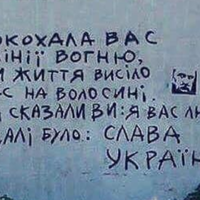 ОКОХАЛА ВАС
ІНІЇ ВОГНЮ,
И ЖИТТЯ ВИСІЛО
С НА ВОЛОСИНІ.
СКАЗАЛИ ВИ: Я ВАС ЛЮ
АЛІ БУЛО: СЛАВА
УКРАЇН